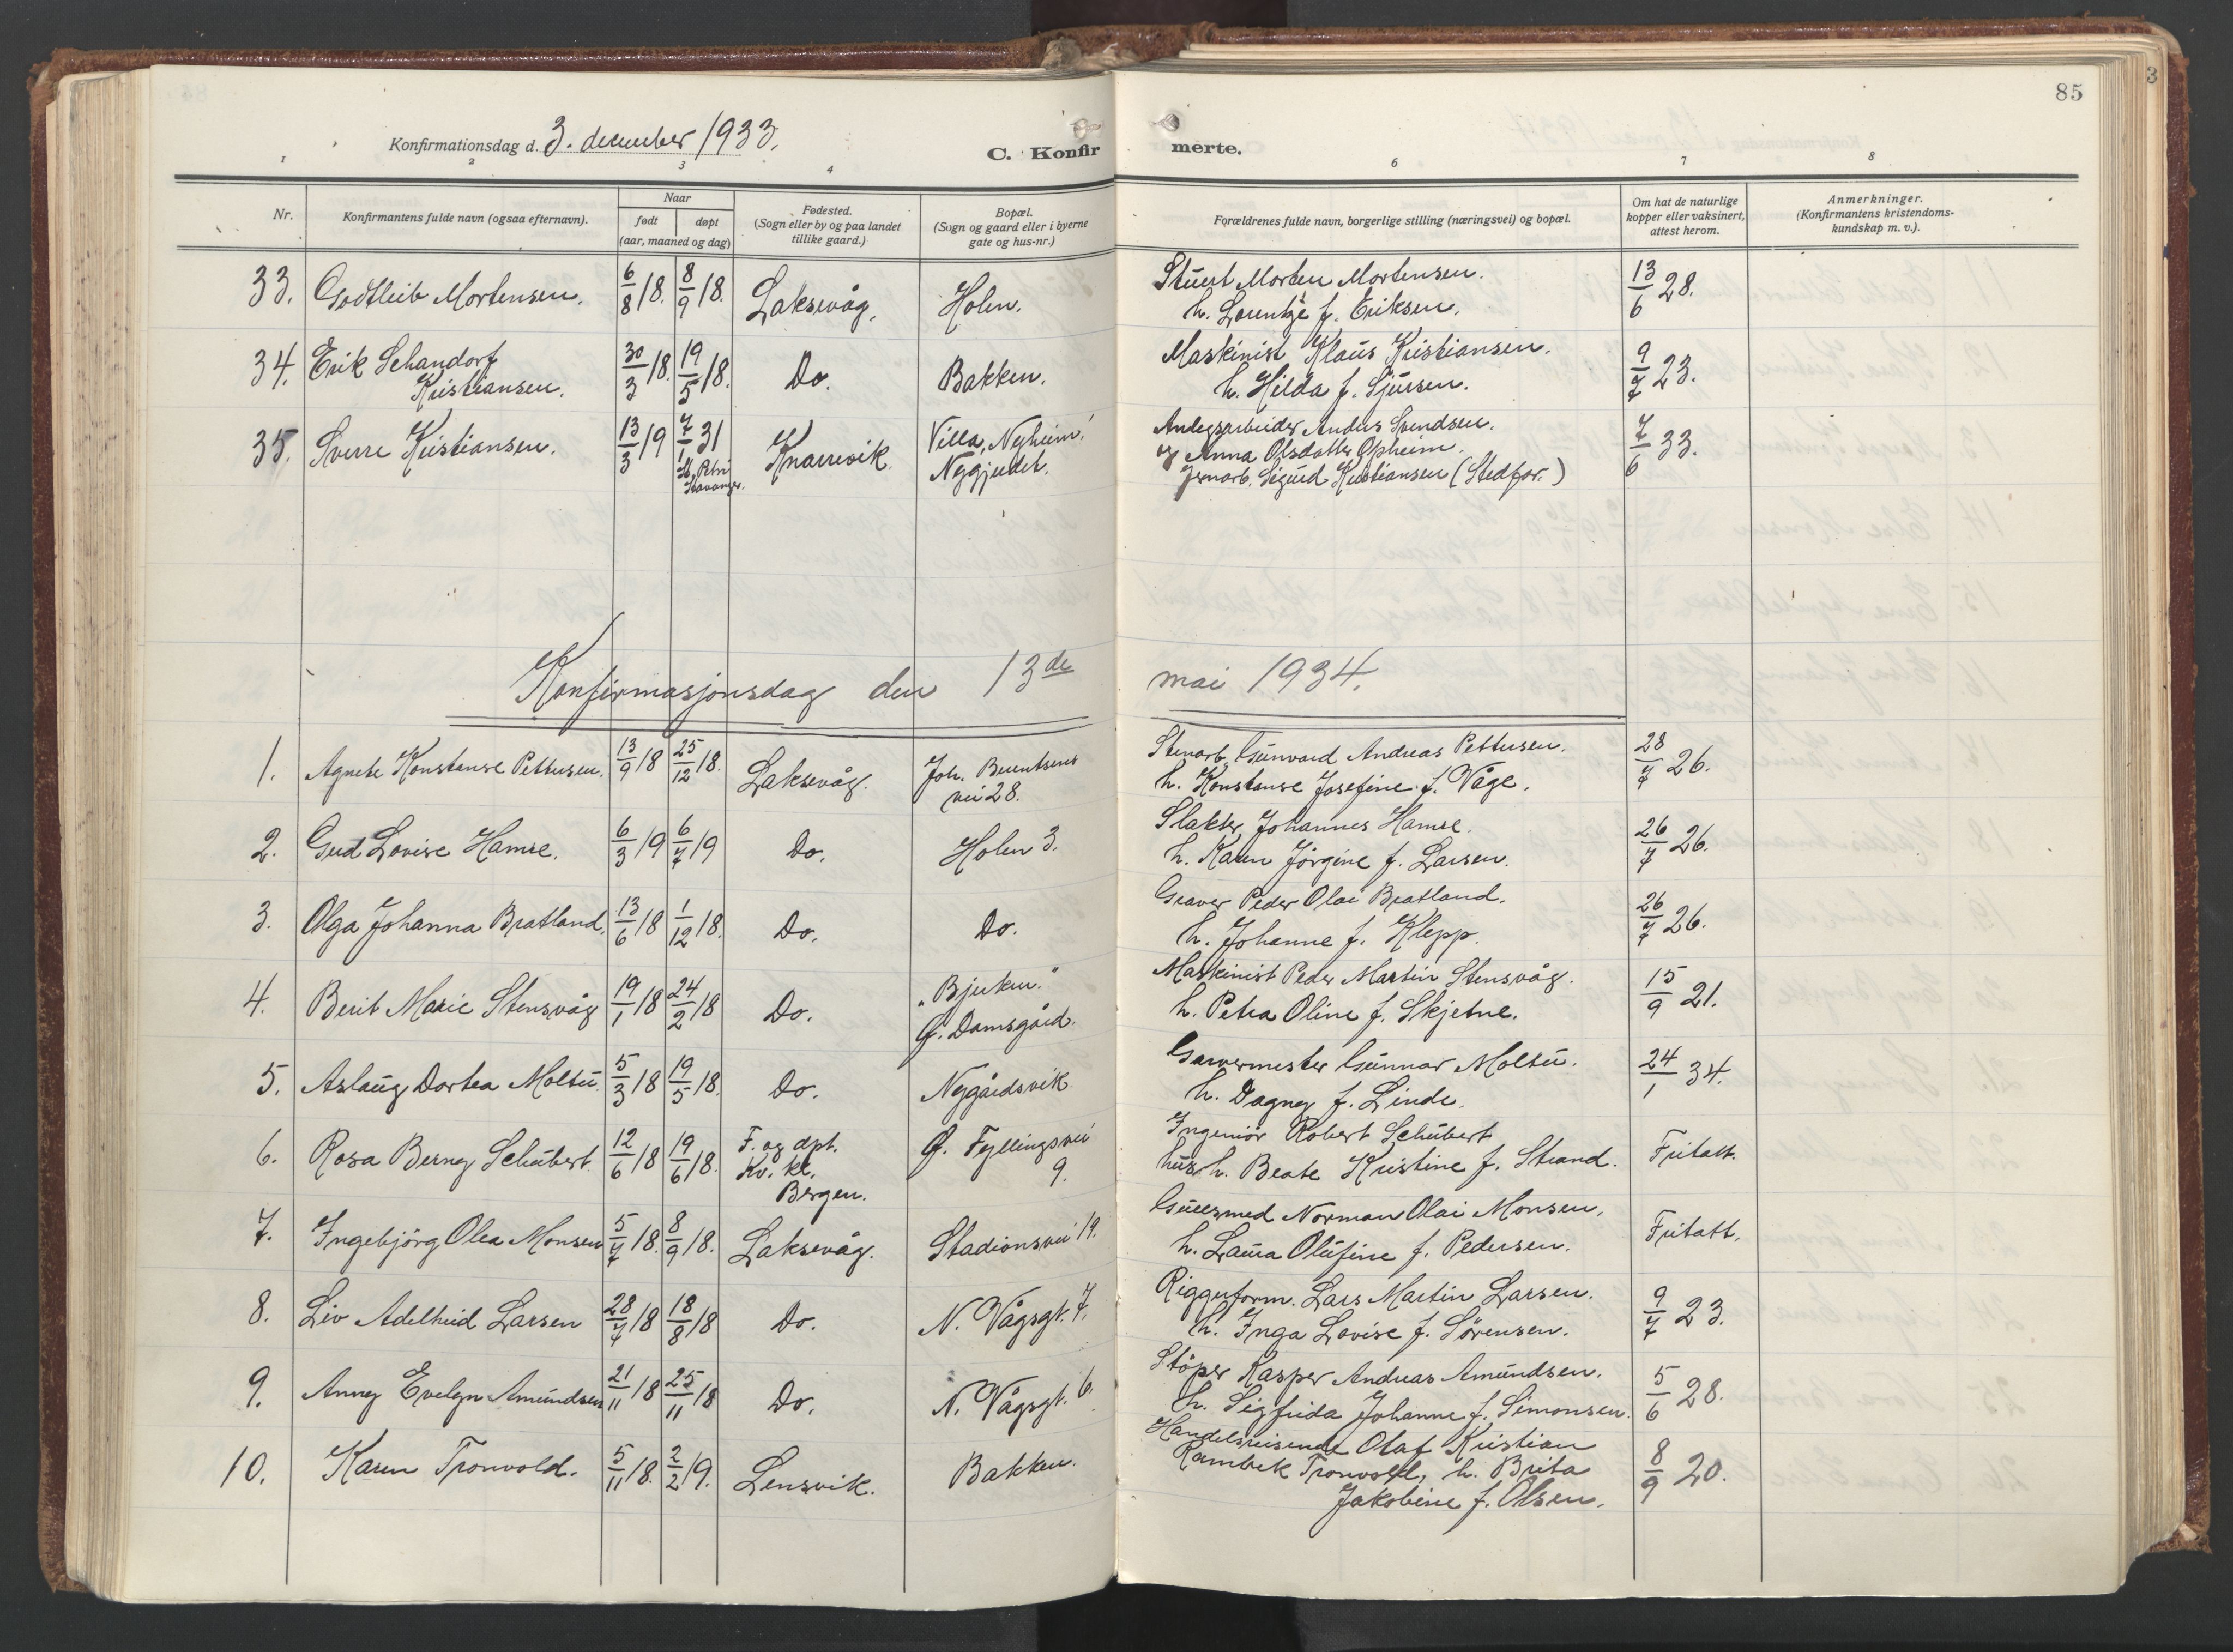 85
3
Konfirmationsdag d. 3. december 1933.
C. Konfirmerte.
1 2 3 4 6 7 8
Nr.
Konfirmantens fulde navn (ogsaa efternavn).
Naar
født
døpt
(aar, maaned og dag)
Fødested.
(Sogn eller by og paa landet
tillike gaard.)
Bopæl.
(Sogn og gaard eller i byerne
gate og hus-nr.)
Forældrenes fulde navn, borgerlige stilling (næringsvei) og bopæl.
Om hat de naturlige
kopper eller vaksinert,
attest herom.
Anmerkninger.
(Konfirmantens kristendoms-
kundskap m. v.).
33. Godtleib Mortensen. 6/8 18. 8/9 18. Laksevåg. Holen. Stuert Morten Mortensen. 13/6 28.
h. Lorentze f. Eriksen.
34. Erik Schandorf 30/3 18. 19/5 18. Do. Bakken. Maskinist Klaus Kristiansen. 9/7 23.
Kristiansen. h. Hilda f. Sjursen.
35. Sverre Kristiansen. 13/3 19 7/1 31 Knarrevik. Villa "Nyheim" Anlegsarbeider Anders Svendsen. 7/6 33.
St. Petri Nygjerdet. og Anna Olsdatter Opheim.
Stavanger. Jernarb. Sigurd Kristiansen (Stedfor.)
Konfirmasjonsdag den 13de mai 1934.
1. Agnete Konstanse Pettersen. 13/9 18 25/12 18. Laksevåg. Joh. Berentsens Stenarb. Gunvard Andreas Pettersen. 28/7 26.
vei 28. h. Konstanse Josefine f. Våge.
2. Gud Lovise Hamre. 6/3 19 6/7 19 Do. Holen 3. Slakter Johannes Hamre. 26/7 26.
h. Karen Jörgine f. Larsen.
3. Olga Johanna Bratland. 13/6 18 1/12 18. Do. Do. Graver Peder Olai Bratland. 26/7 26.
h. Johanne f. Klepp.
4. Berit Marie Stensvåg 19/1 18 24/2 18 Do. "Bjerken." Maskinist Peder Martin Stensvåg. 15/9 21.
Ø. Damsgård. h. Petra Oline f. Skjetne.
5. Aslaug Dortea Moltu. 5/3 18 19/5 18. Do. Nygårdsvik Garvermester Gunnar Moltu. 24/1 34.
h. Dagny f. Linde.
6. Rosa Berny Schubert. 12/6 18 19/6 18. F. og dpt. Ø. Fyllingsvei Ingeniör Robert Schubert Fritatt.
Kv. kl. 9. hus h. Beate Kristine f. Strand.
Bergen.
7. Ingebjörg Olea Monsen 5/7 18. 8/9 18. Laksevåg. Stadionsvei 19. Gullsmed Norman Olai Monsen, Fritatt.
h. Laura Olufine f. Pedersen.
8. Liv Adelheid Larsen 28/7 18 18/8 18 Do. N. Vågsgt. 7. Riggerform. Lars Martin Larsen. 9/7 23.
h. Inga Lovise f. Sörensen.
9. Anny Evelyn Amundsen 21/11 18 25/11 18 Do. N. Vågsgt. 6. Stöper Kasper Andreas Amundsen. 5/6 28.
h. Sigfrida Johanne f. Simonsen.
10. Karen Tronvold. 5/11 18. 2/2 19. Lensvik. Bakken. Handelsreisende Olaf Kristian 8/9 20.
Rambek Tronvold, h. Brita
Jakobine f. Olsen.